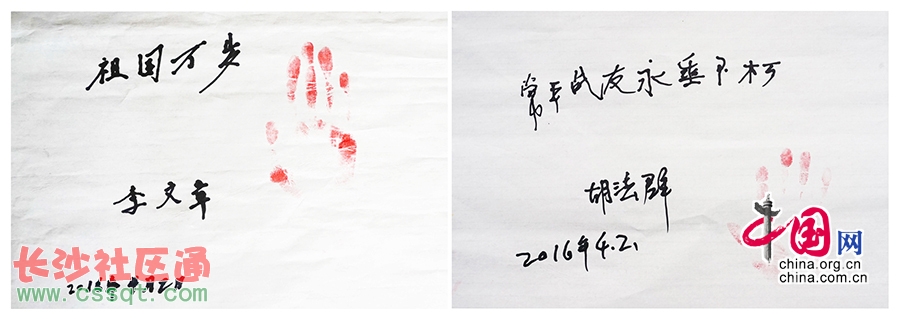 祖国万岁
李文章
2016年 月二日
长沙社区通
www.cssqt.com
常平战友永垂不朽
胡法群
2016年4.2.
中国网
china.org.cn
china.com.cn